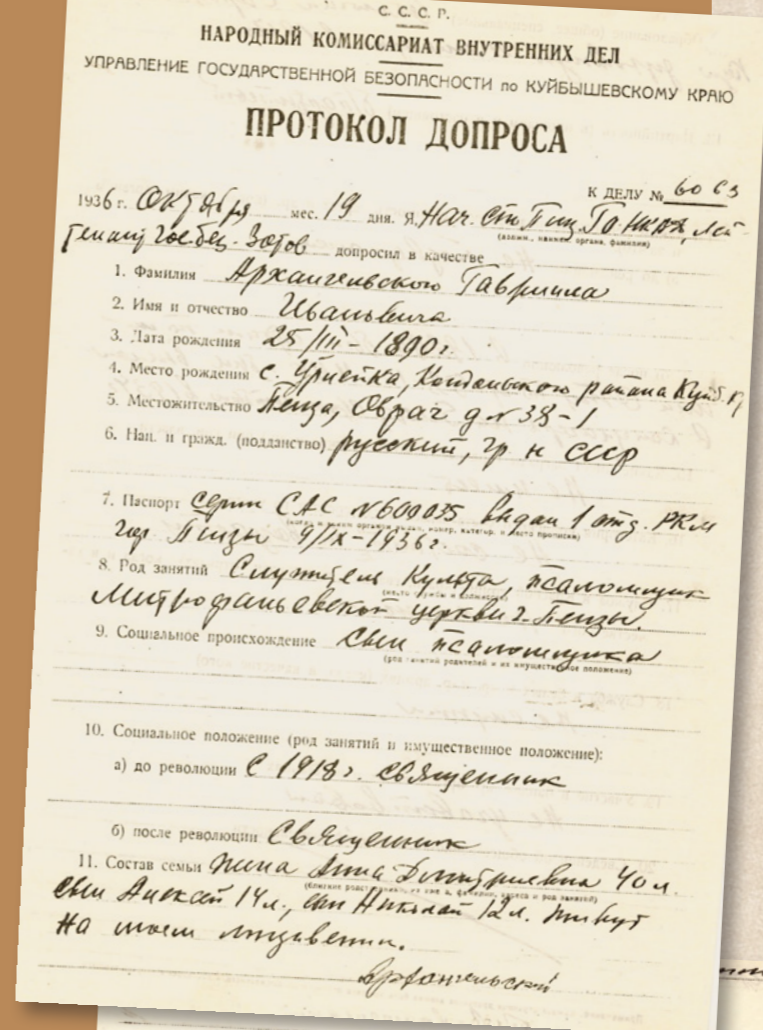 С. С. С. Р.
НАРОДНЫЙ КОМИССАРИАТ ВНУТРЕННИХ ДЕЛ
УПРАВЛЕНИЕ ГОСУДАРСТВЕННОЙ БЕЗОПАСНОСТИ по КУЙБЫШЕВСКОМУ КРАЮ
ПРОТОКОЛ ДОПРОСА
К ДЕЛУ № 6063
1936 г. Октября мес. 19 дня. Я, Нач. НКВД, Лей-
тенант Гос. без. Зотов допросил в качестве
1. Фамилия Архангельского Гавриила
2. Имя и отчество Ивановича
3. Дата рождения 25/III - 1890 г.
4. Место рождения с. района Куйб. к
5. Местожительство Пенза, Овраг д № 38-1
6. Нац. и гражд. (подданство) русский, гр н СССР
7. Паспорт серии САС № 600035 выдан 1 отд. РКМ
гор Пензы 9/IX-1936 г.
8. Род занятий Служитель Культа, псаломщик
Митрофаньевской церкви г. Пензы.
9. Социальное происхождение сын псаломщика
(род занятий родителей и их имущественное положение)
10. Социальное положение (род занятий и имущественное положение):
а) до революции С 1918 г. священник
б) после революции Священник
11. Состав семьи жена Анна Дмитриевна 40 л.
сын Алексей 14 л., сын Николай 12 л. живут
на моем иждивении.
Архангельский